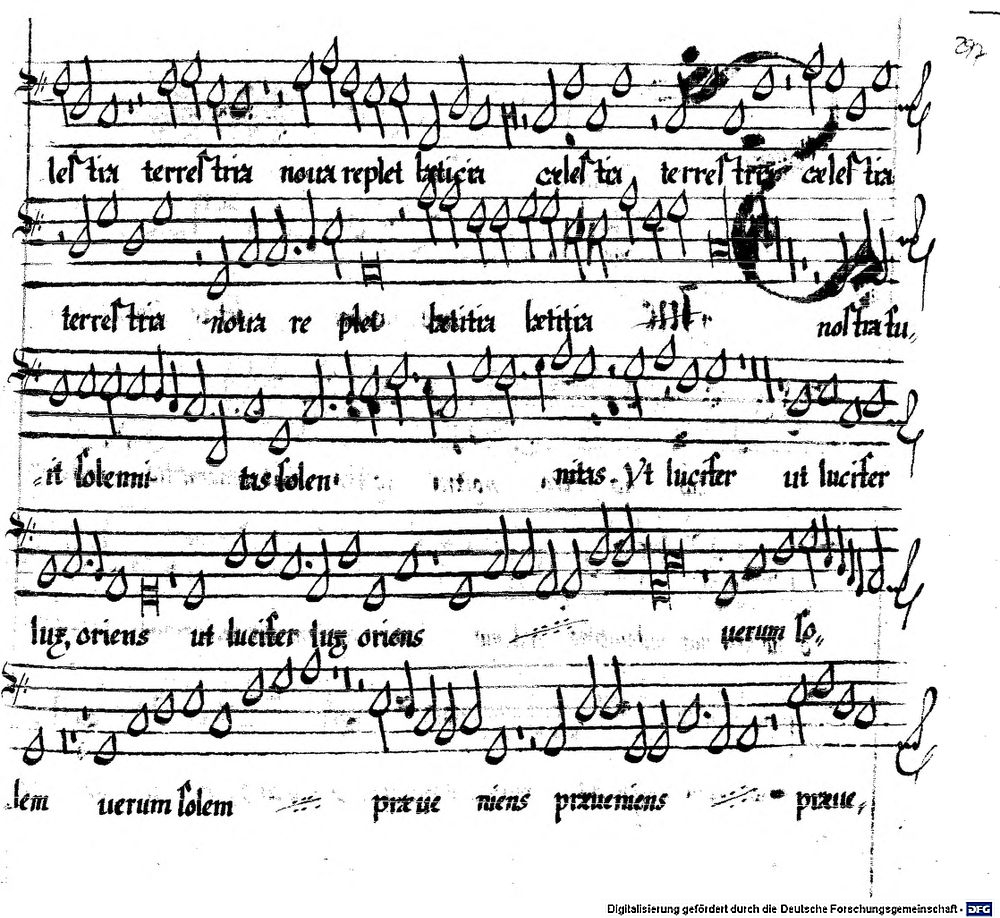 297
lestia terrestria noua replet læticia cælestia terrestria cælestia
terrestria noua re plet lætitia lætitia nostra fu,,
it solenni tas solen nitas Vt lucifer ut lucifer
lux oriens ut lucifer lux oriens uerum so,,
lem uerum solem præue niens præueniens præue,,
Digitalisierung gefördert durch die Deutsche Forschungsgemeinschaft - DFG